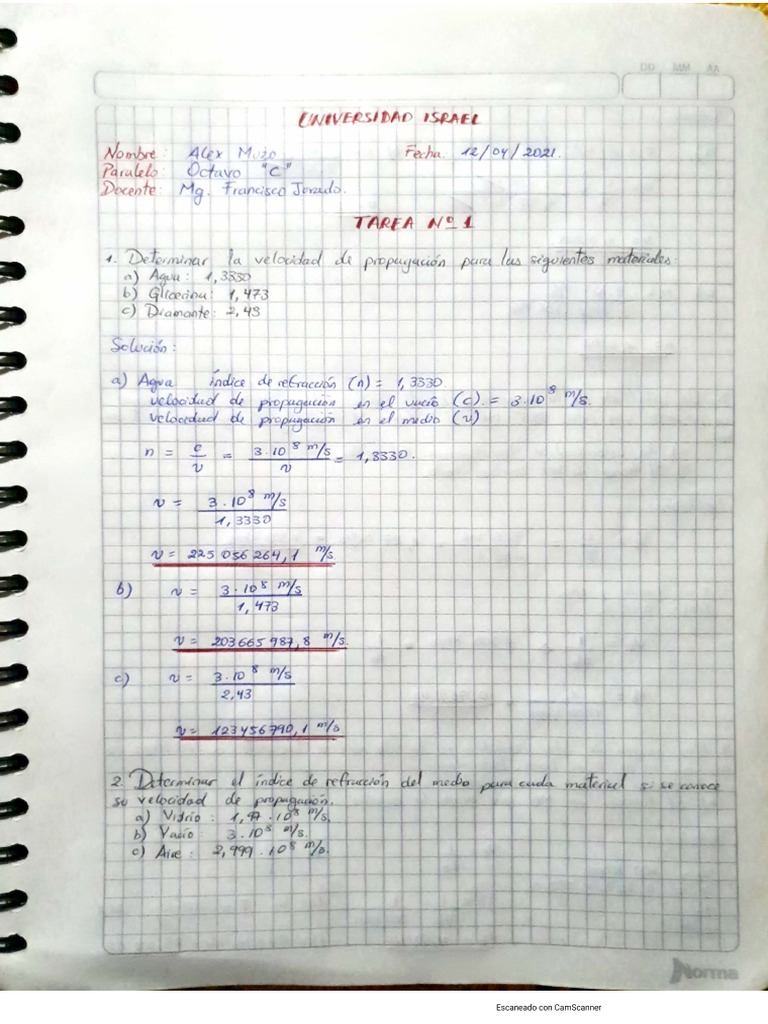 DD MM AA
UNIVERSIDAD ISRAEL
Nombre: Alex Muzo Fecha: 12/04/2021.
Paralelo: Octavo "C"
Docente: Mg. Francisco Jurado.
TAREA Nº 1
1. Determinar la velocidad de propagación para los siguientes materiales:
a) Agua: 1,3330
b) Glicerina: 1,473
c) Diamante: 2,43
Solución:
a) Agua índice de refracción (n) = 1,3330
velocidad de propagación en el vacío (c). = 3.10⁸ m/s.
velocidad de propagación en el medio (v)
n = c/v = 3.10⁸ m/s / v = 1,3330.
v = 3.10⁸ m/s / 1,3330
v = 225 056 264,1 m/s
b) v = 3.10⁸ m/s / 1,473
v = 203 665 987,8 m/s.
c) v = 3.10⁸ m/s / 2,43
v = 123 456 790,1 m/s
2. Determinar el índice de refracción del medio para cada material si se conoce
su velocidad de propagación.
a) Vidrio: .10⁸ m/s.
b) Vacío: 3.10⁸ m/s.
c) Aire: 2,999.10⁸ m/s.
Norma
Escaneado con CamScanner